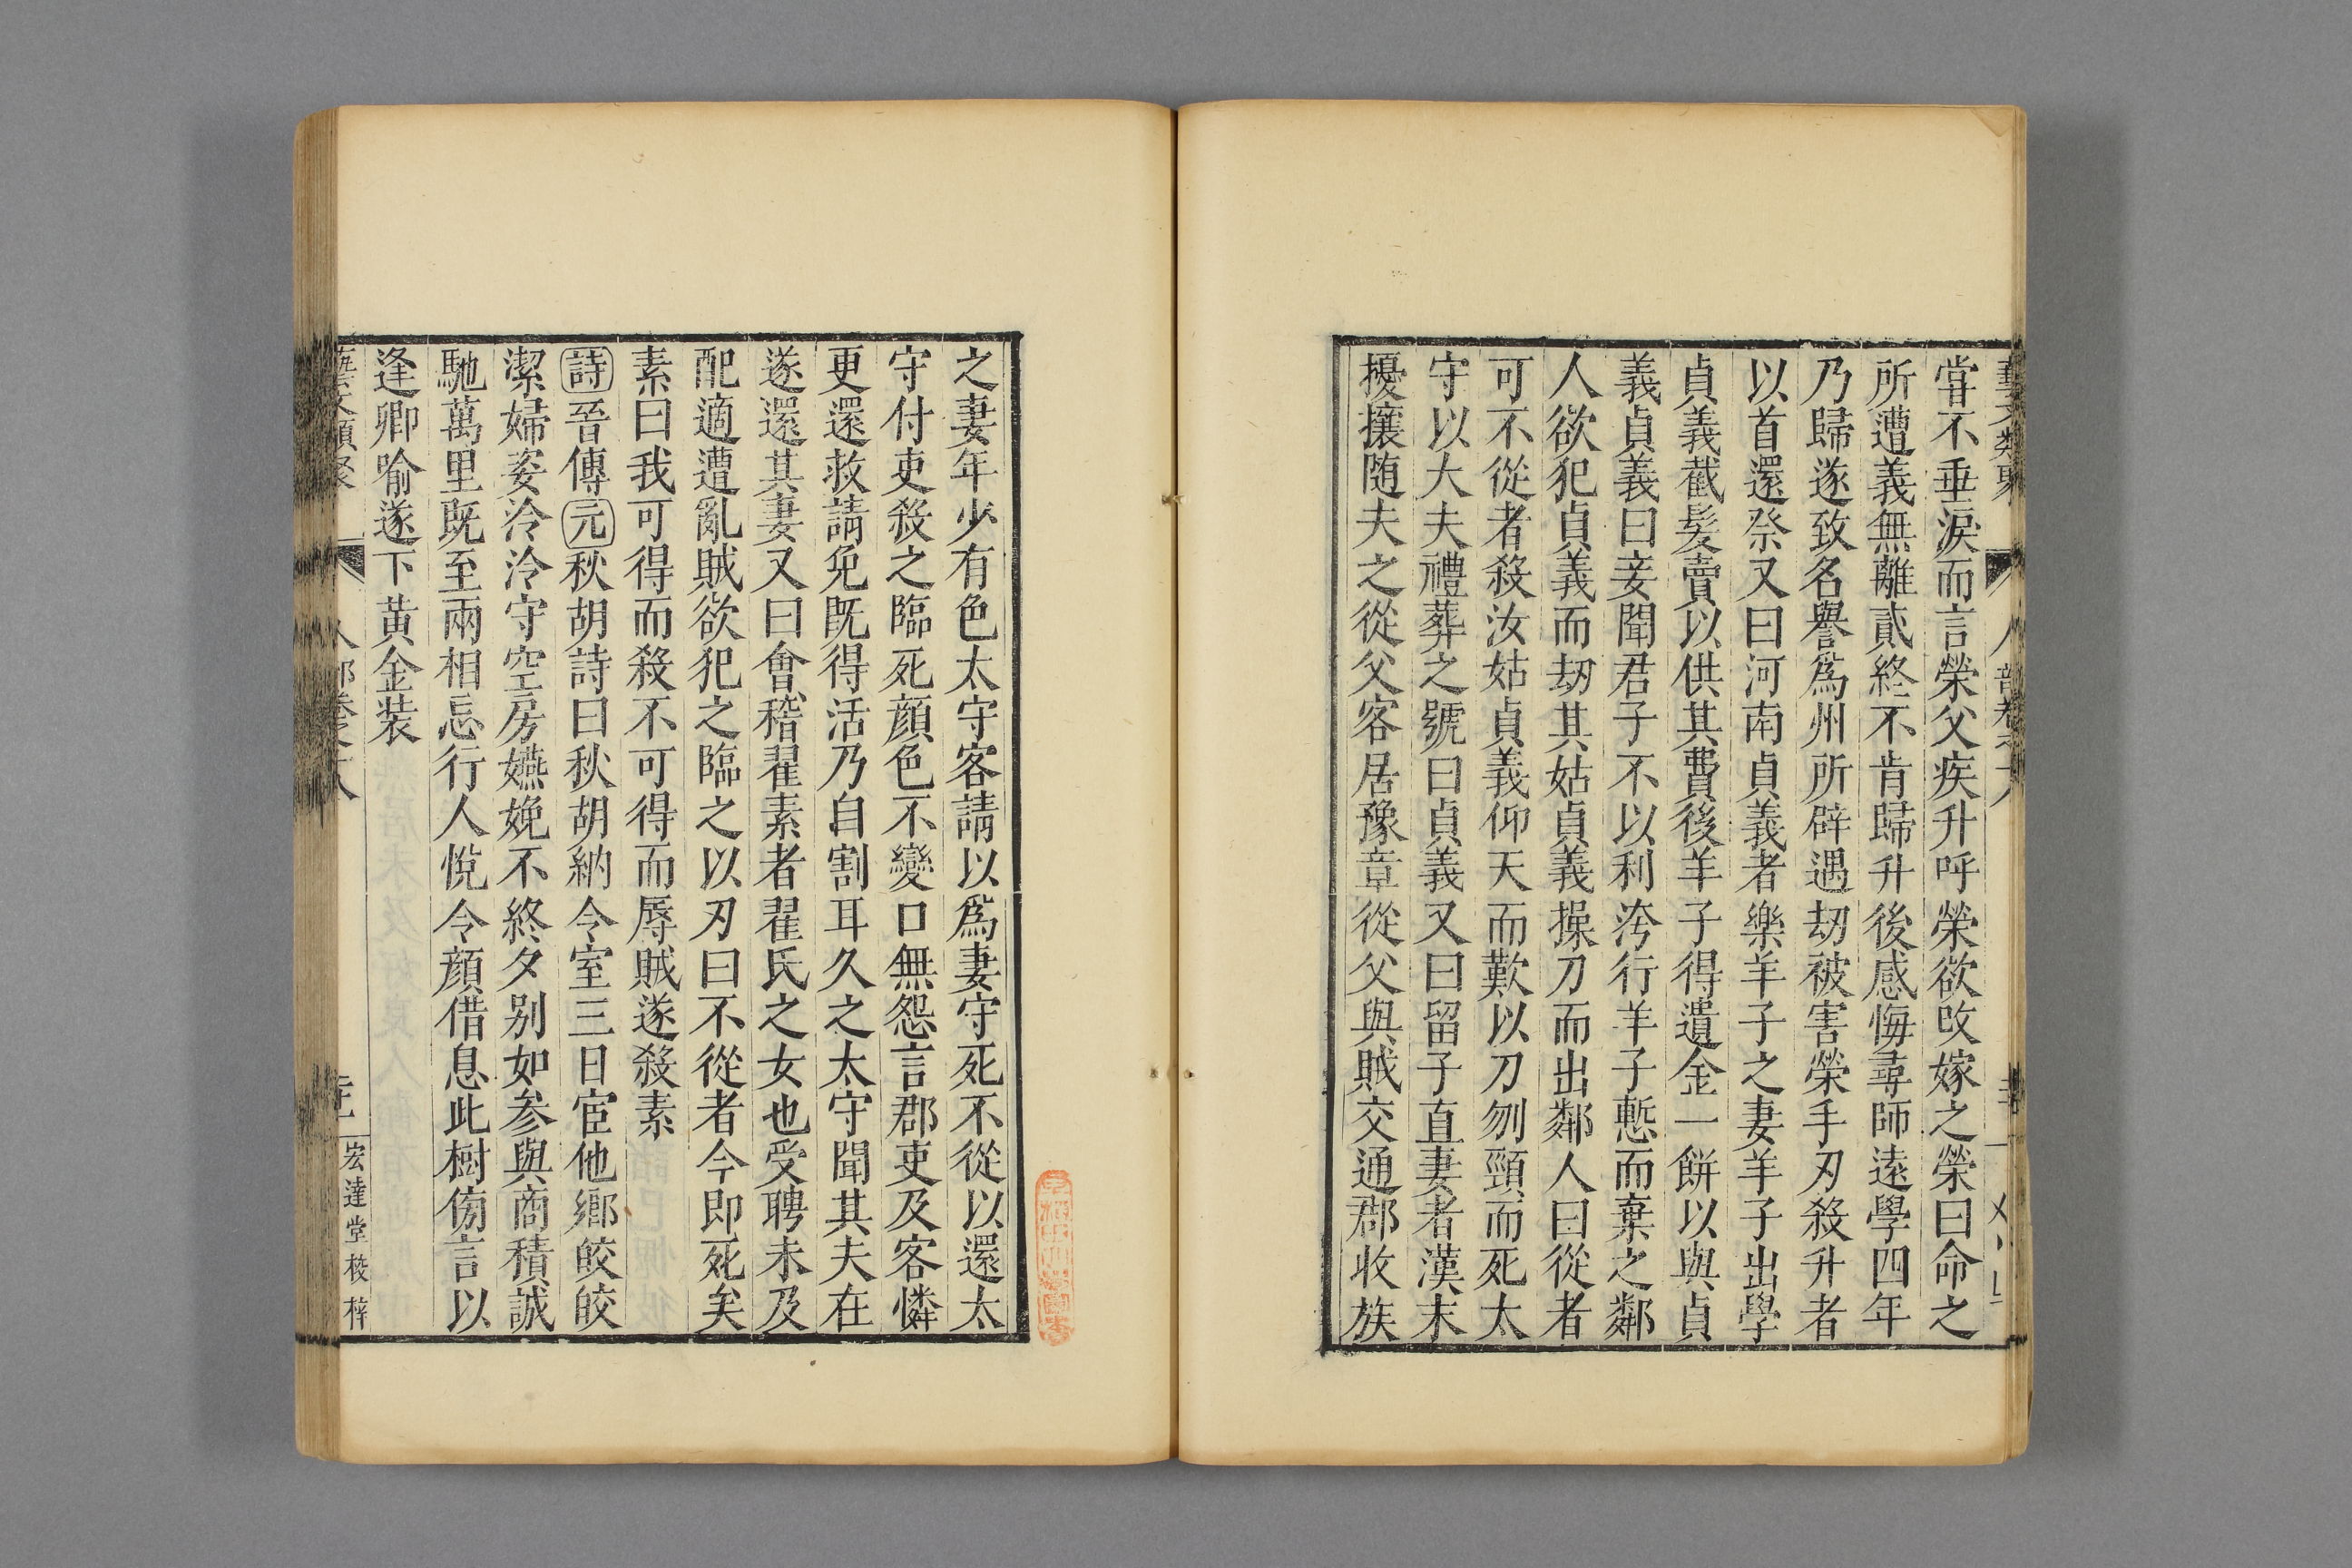 甞不垂淚而言榮父疾升呼榮欲改嫁之榮曰命之
所遭義無離貳終不肯歸升後感悔尋師遠學四年
乃歸遂致名譽爲州所辟遇刼被害榮手刃殺升者
以首還祭又曰河南貞義者樂羊子之妻羊子出學
貞義截髮賣以供其費後羊子得遺金一餅以與貞
義貞義曰妾聞君子不以利洿行羊子慙而棄之鄰
人欲犯貞義而刼其姑貞義操刀而出鄰人曰從者
可不從者殺汝姑貞義仰天而歎以刀刎頸而死太
守以大夫禮葬之號曰貞義又曰留子直妻者漢末
擾攘随夫之從父客居豫章從父與賊交通郡收族
之妻年少有色太守客請以爲妻守死不從以還太
守付吏殺之臨死顔色不變口無怨言郡吏及客憐
更還救請免既得活乃自割耳久之太守聞其夫在
遂還其妻又曰會稽翟素者翟氏之女也受聘未及
配適遭亂賊欲犯之臨之以刃曰不從者今即死矣
素曰我可得而殺不可得而辱賊遂殺素
詩晉傳元秋胡詩曰秋胡納令室三日宦他鄉皎皎
潔婦姿泠泠守空房嬿婉不終夕别如參與商積誠
馳萬里既至兩相忘行人悅令顔借息此樹傍言以
逢卿喻遂下黄金装
人部卷之十八
宏達堂校梓